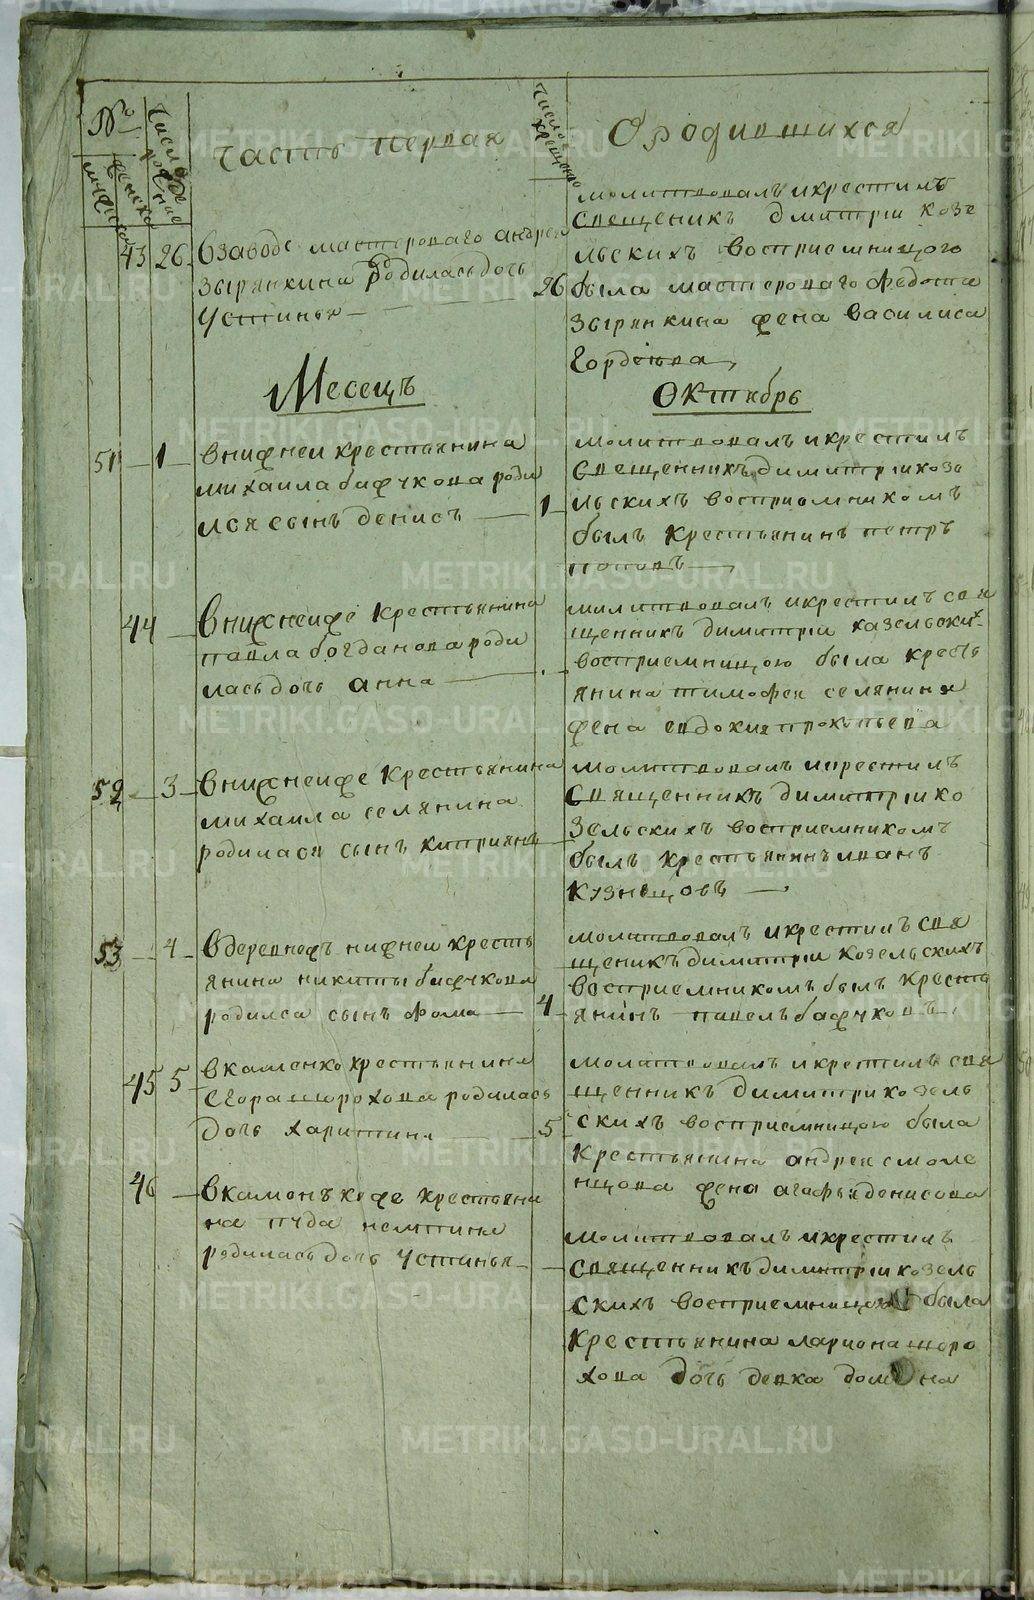 №
мужеска
женска
Число рожде
ние
часть первая
число крещение
О родившихся
43 26 В заводе мастероваго андрея
зырянкина родилась дочь
устинья
26
молитвовалъ и крестилъ
священикъ димитрии козе
льскихъ восприемницою
была мастероваго федота
зырянкина жена василиса
гордеева
Месецъ
Октябрь
51 1 в нижнеи крестьянина
михаила бажукова роди
лся сынъ денисъ
1
молитвовалъ и крестилъ
священникъ димитрии козе
льскихъ восприемникомъ
былъ крестьянинъ петръ
поповъ
44 в нижнеиже крестьянина
павла богданова роди
лась дочь анна
молитвовалъ и крестилъ свя
щенникъ димитрии казельских
восприемницою была кресть
янина тимофея селянина
жена евдокия прокопьева
52 3 в нижнеиже крестьянина
михаила селянина
родился сынъ киприянъ
молитвовалъ и крестилъ
священникъ димитрии ко
зельскихъ восприемникомъ
былъ крестьянинъ иванъ
кузнецовъ
53 4 в деревнехъ нижнеи кресть
янина никиты бажукова
родился сынъ фома
4
молитвовалъ и крестилъ свя
щеникъ димитрии козельскихъ
восприемникомъ былъ кресть
янинъ павелъ бажуковъ
45 5 в каменко крестьянина
егора шорохова родилась
дочь харитина
5
молитвовалъ и крестилъ свя
щенникъ димитри козель
скихъ восприемницою была
крестьянина андрея смоле
нцова жена агафья денисова
46 в каменъкеже крестьяни
на иуда немтина
родилась дочь устинья
молитвовалъ и крестилъ
священникъ димитрии козель
скихъ восприемницою была
крестьянина лариона шоро
хова дочь девка домна
METRIKI.GASO-URAL.RU